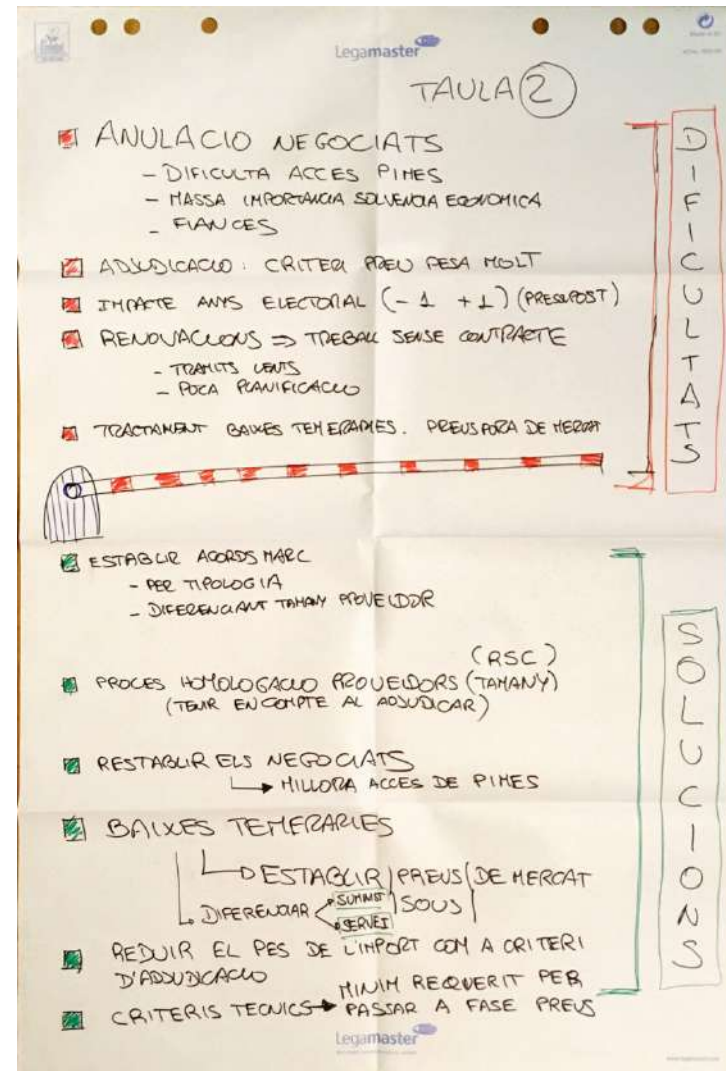 Legamaster
TAULA 2
ANULACIO NEGOCIATS
- DIFICULTA ACCES PIMES
- MASSA IMPORTANCIA SOLVENCIA ECONOMICA
- FIANCES
ADJUDICACIO: CRITERI PREU PESA MOLT
IMPACTE ANYS ELECTORAL (-1 +1) (PRESUPOST)
RENOVACIONS ⇒ TREBALL SENSE CONTRACTE
- TRAMITS LENTS
- POCA PLANIFICACIO
TRACTAMENT BAIXES TEMERARIES. PREUS FORA DE MERCAT
DIFICULTATS
ESTABLIR ACORDS MARC
- PER TIPOLOGIA
- DIFERENCIANT TAMANY PROVEIDOR
(RSC)
PROCES HOMOLOGACIO PROVEIDORS (TAMANY)
(TENIR EN COMPTE AL ADJUDICAR)
RESTABLIR ELS NEGOCIATS
→ MILLORA ACCES DE PIMES
BAIXES TEMERARIES
→ ESTABLIR PREUS DE MERCAT
SOUS
→ DIFERENCIAR
SUMINIST
SERVEI
REDUIR EL PES DE L'IMPORT COM A CRITERI
D'ADJUDICACIO
CRITERIS TECNICS → MINIM REQUERIT PER
PASSAR A FASE PREUS
SOLUCIONS
Legamaster